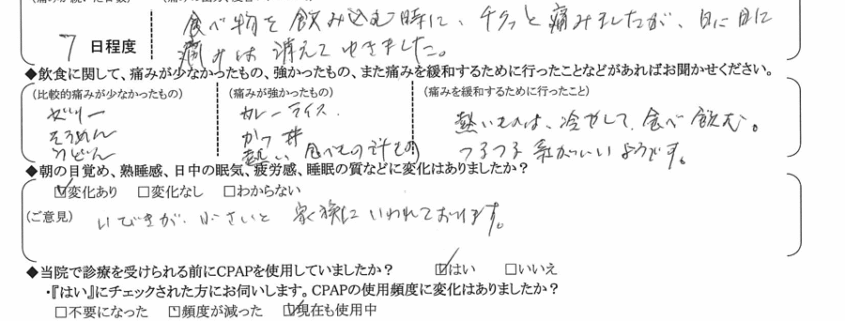 (痛みが続いた日数)
食べ物を飲み込む時に、チクっと痛みましたが、日に日に
7 日程度 痛みは消えてゆきました。
◆飲食に関して、痛みが少なかったもの、強かったもの、また痛みを緩和するために行ったことなどがあればお聞かせください。
(比較的痛みが少なかったもの) (痛みが強かったもの) (痛みを緩和するために行ったこと)
ゼリー カレーライス. 熱いものは、冷やして、食べ飲む。
そうめん かつ丼
うどん 熱い食べもの つるつる系がいいようです。
◆朝の目覚め、熟睡感、日中の眠気、疲労感、睡眠の質などに変化はありましたか?
☑変化あり □変化なし □わからない
(ご意見) いびきが、小さいと家族にいわれております。
◆当院で診療を受けられる前にCPAPを使用していましたか? ☑はい □いいえ
・『はい』にチェックされた方にお伺いします。CPAPの使用頻度に変化はありましたか?
□不要になった □頻度が減った ☑現在も使用中